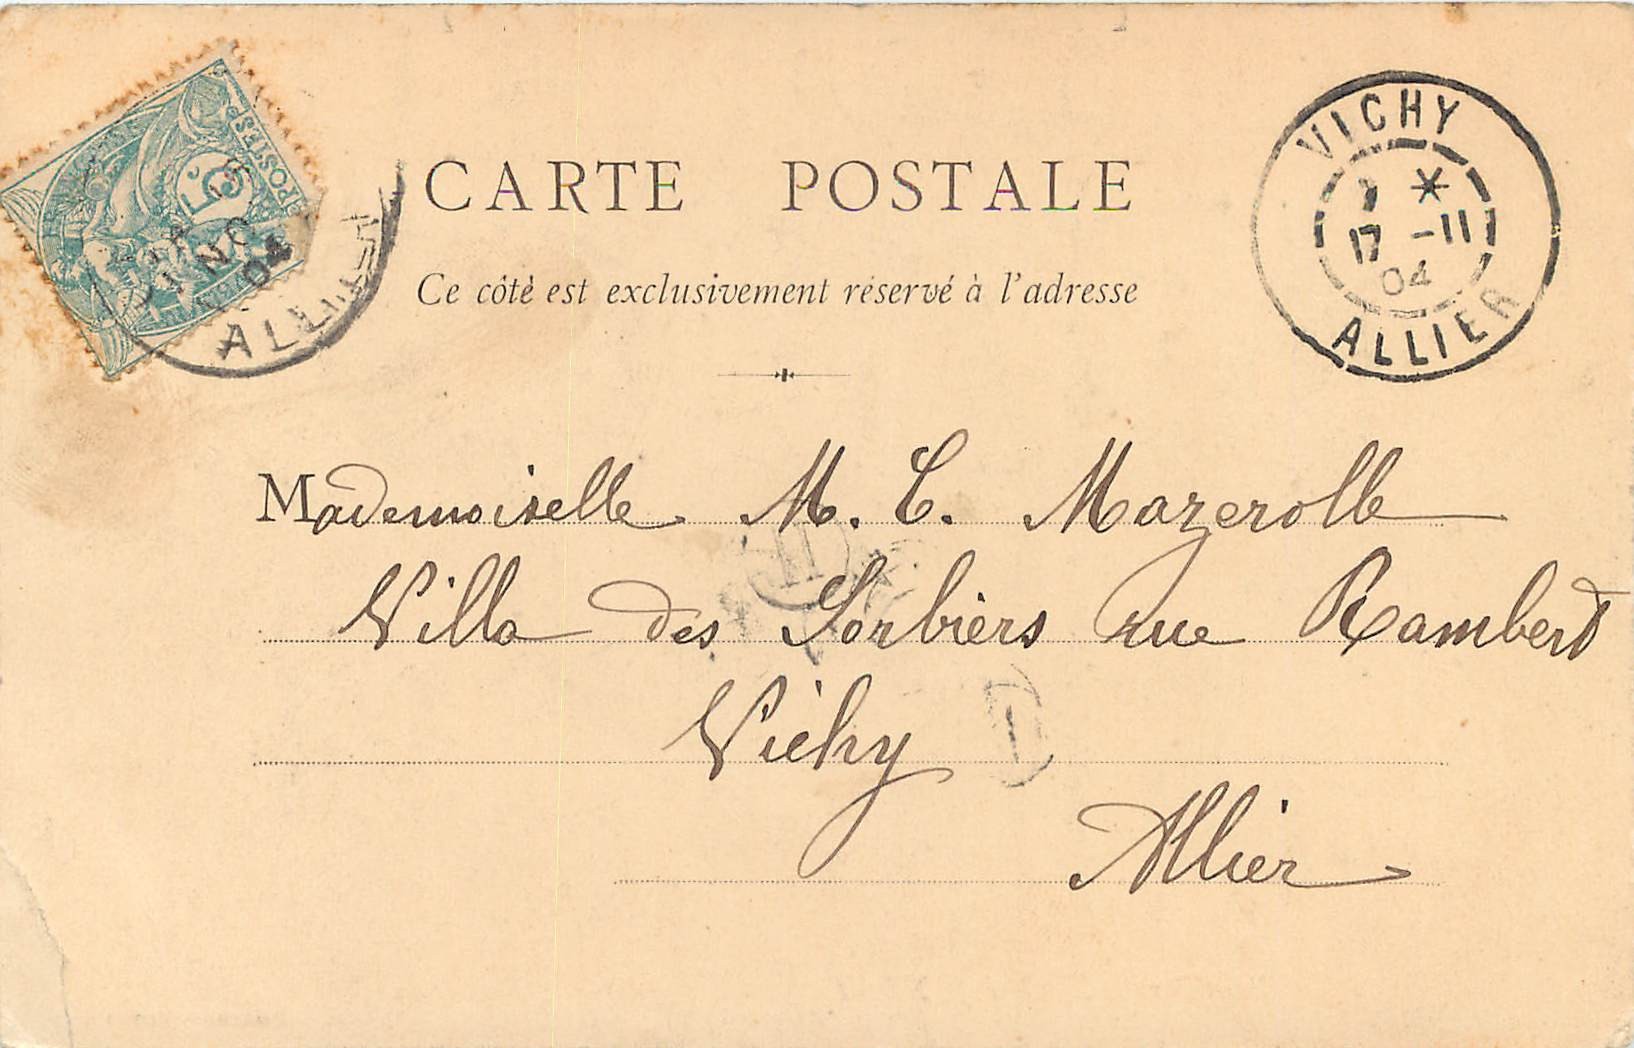 CARTE POSTALE
Ce côté est exclusivement réservé à l'adresse
VICHY
*
17 -11
04
ALLIER
POSTES
5c
NO
04
ALLIER
Mademoiselle M. C. Mazerolle
Villa des Sorbiers rue Rambert
Vichy
1
Allier